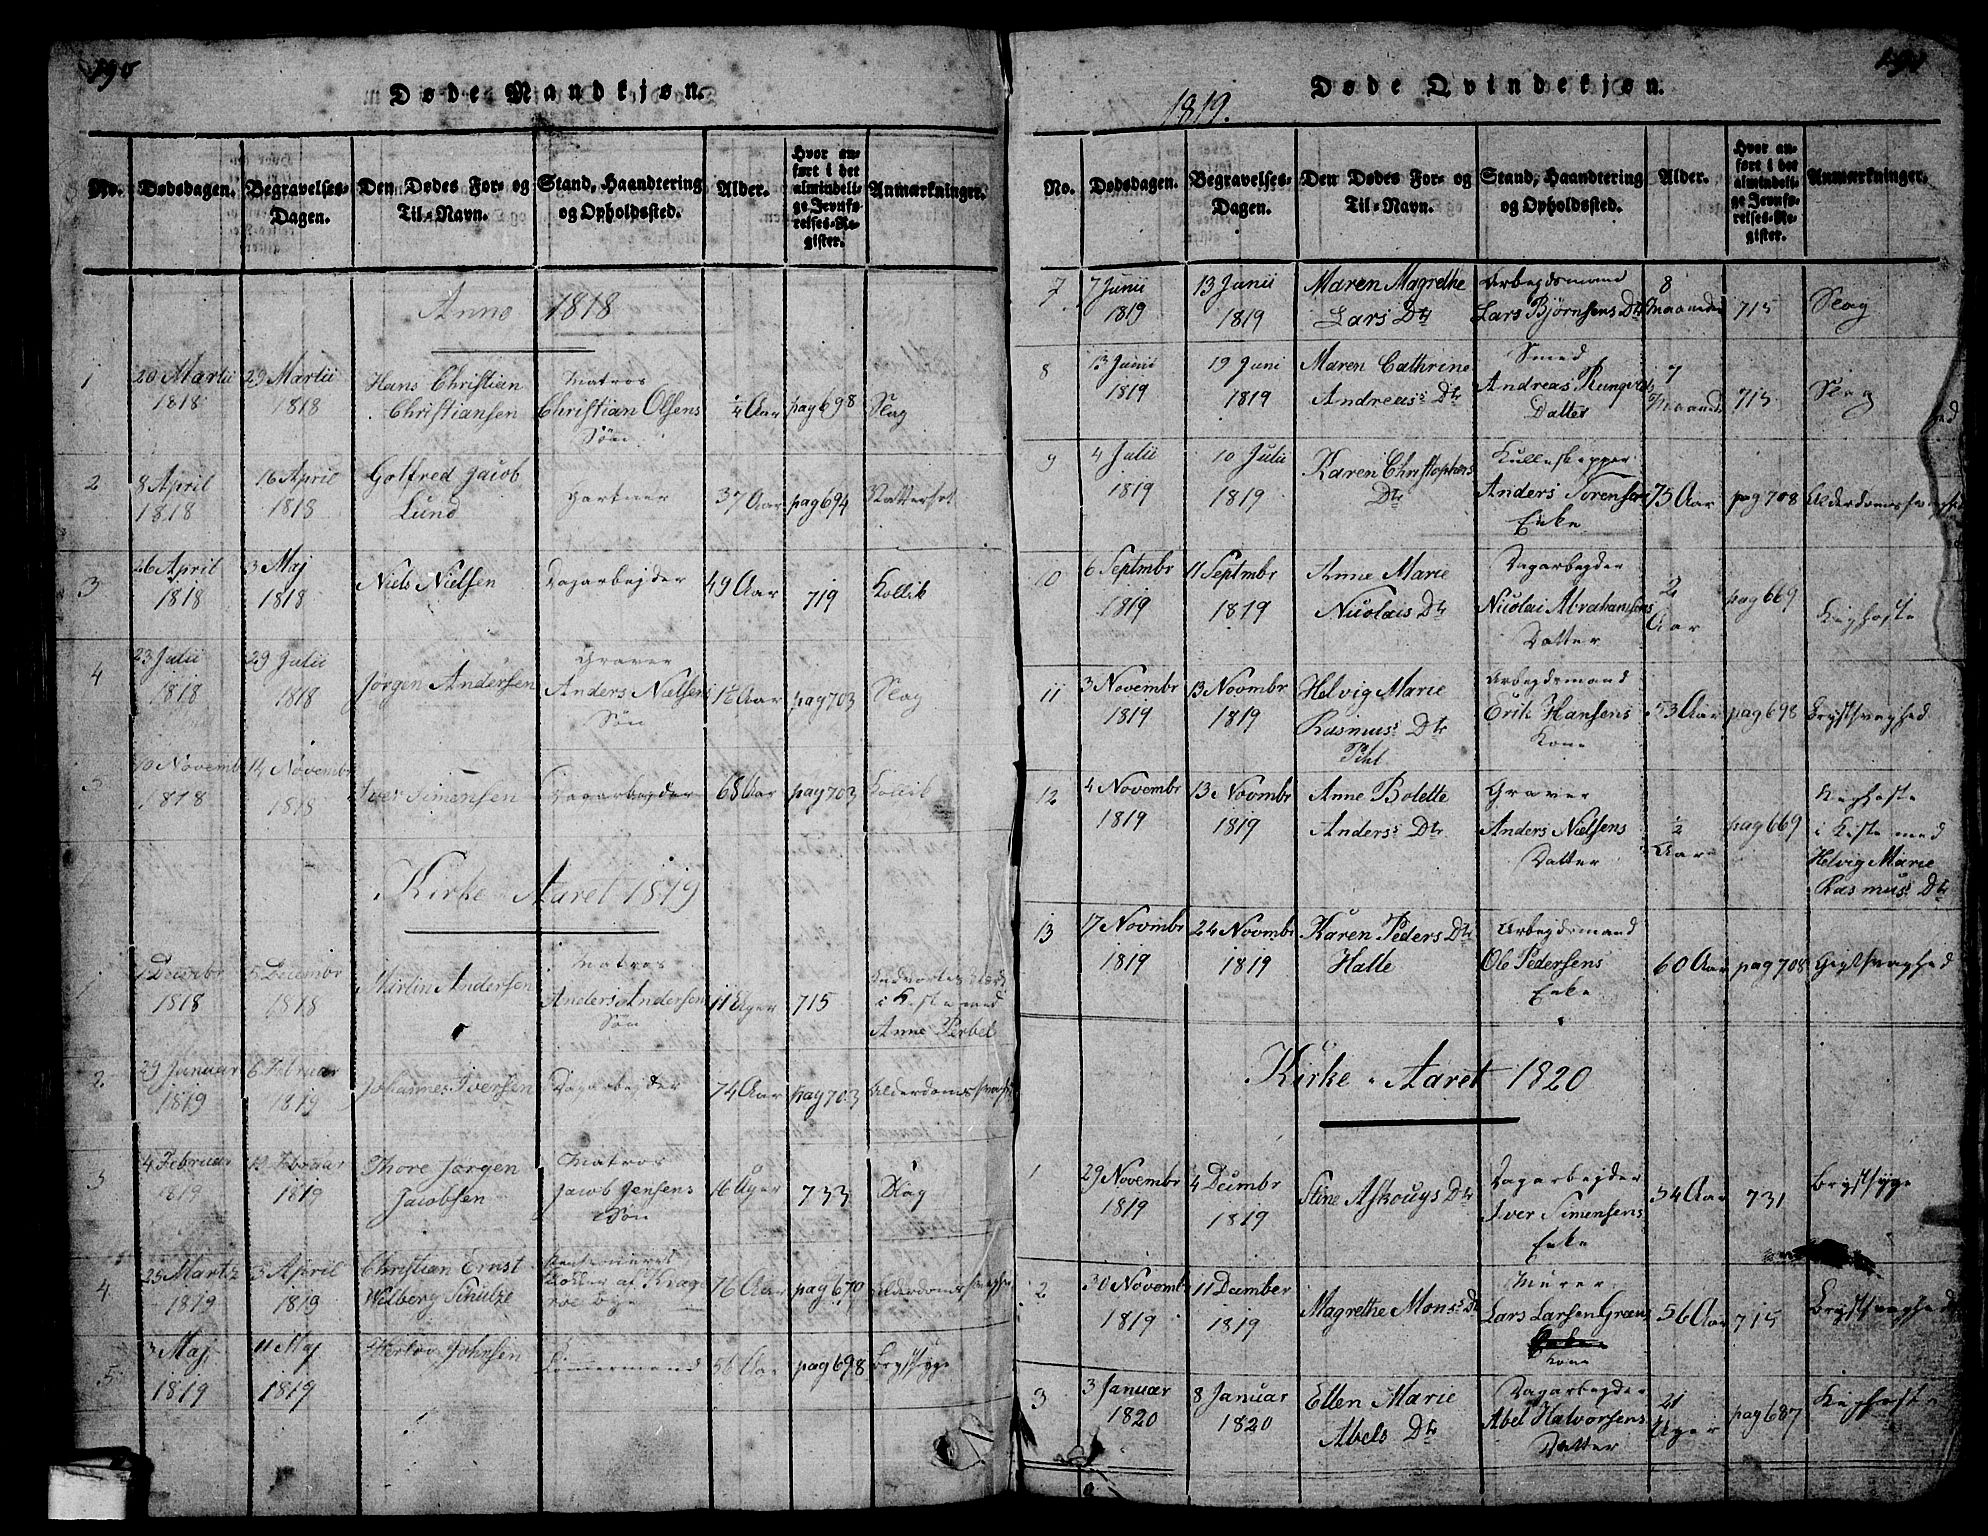 190
Døde Mandkjøn.
No.
Dødsdagen.
Begravelses-
Dagen.
Den Dødes For- og
Til-Navn.
Stand, Haandtering
og Opholdssted.
Alder.
Hvor an-
ført i det
almindeli-
ge Jevnfø-
relses-Re-
gister.
Anmærkninger.
Anno 1818
1
20 Martii
1818
29 Martii
1818
Hans Christian
Christiansen
Matros
Christian Olsens
Søn
1/4 Aar
pag 698
Slag
2
8 April
1818
16 April
1818
Gotfred Jacob
Lund
Gartner
37 Aar
pag 694
3
26 April
1818
3 Maj
1818
Niels Nielsen
Dagarbejder
49 Aar
719
Kollik
4
23 Julii
1818
29 Julii
1818
Jørgen Andersen
Graver
Anders Nielsens
Søn
Aar
pag 703
Slag
10 Novembr
1818
14 Novembr
1818
Iver Simensen
Dagarbejder
68 Aar
pag 703
Kolik
Kirke-Aaret 1819
1
Decebr
1818
5 Decembr
1818
Martin Andersen
Matros
Anders Andersens
Søn
11 Uger
715
i Kiste med
Anne Perbel
2
29 Januar
1819
6 Februar
1819
Johannes Iversen
Dagarbejder
74 Aar
pag 703
Alderdoms
3
4 Februar
1819
Februar
1819
Thore Jørgen
Jacobsen
Matros
Jacob Jensens
Søn
16 Uger
733
Slag
4
25 Martz
1819
3 April
1819
Christian Ernst
Wilberg Schulze
af Krage
røe Bye
76 Aar
pag 670
Alderdoms
5
3 Maj
1819
11 Maj
1819
Herlov Johnsen
56 Aar
pag 698
Brystsyge
191
Døde Qvindekjøn.
1819.
No.
Dødsdagen.
Begravelses-
Dagen.
Den Dødes For- og
Til-Navn.
Stand, Haandtering
og Opholdssted.
Alder.
Hvor an-
ført i det
almindeli-
ge Jevnfø-
relses-Re-
gister.
Anmærkninger.
7
7 Junii
1819
13 Junii
1819
Maren Magrethe
Lars Dtr
Arbejdsmand
Lars Bjørnsens Dtr
8
Maaneder
715
Slag
8
13 Junii
1819
19 Juni
1819
Maren Cathrine
Andreas Dtr
Smed
Andreas
Datter
7
Maaneder
715
Slag
9
4 Julii
1819
10 Julii
1819
Karen Christophers
Dtr
Anders Sørensens
Enke
75 Aar
pag 708
Alderdomssvaghed
10
6 Septmbr
1819
11 Septmbr
1819
Anne Marie
Nicolais Dtr
Dagarbejder
Nicolai Abrahamsens
Datter
2
Aar
pag 669
Kighoste
11
3 Novembr
1819
13 Novmbr
1819
Helvig Marie
Rasmus: Dtr
Pihl
Arbejdsmand
Erik Hansens
Kone
53 Aar
pag 698
Brystsvaghed
12
4 Novembr
1819
13 Novmbr
1819
Anne Bolette
Anders: Dtr
Graver
Anders Nielsens
Datter
1/2
Aar
pag 669
Kighoste
i Kiste med
Helvig Marie
Rasmus: Dtr
13
17 Novmbr
1819
24 Novmbr
1819
Karen Peders Dtr
Halle
Arbejdsmand
Ole Pedersens
Enke
60 Aar
pag 708
Gigtsvaghed
Kirke-Aaret 1820
1
29 Novembr
1819
4 Decmbr
1819
Stine Askougs Dtr
Dagarbejder
Iver Simensens
Enke
54 Aar
731
Brystsyge
2
30 Novembr
1819
11 December
1819
Magrethe Mons: Dtr
Murer
Lars Larsen
Kone
56 Aar
715
Brystsvaghed
3
3 Januar
1820
8 Januar
1820
Ellen Marie
Abels Dtr
Dagarbejder
Abel Halvorsens
Datter
21
Uger
pag 687
Kighoste